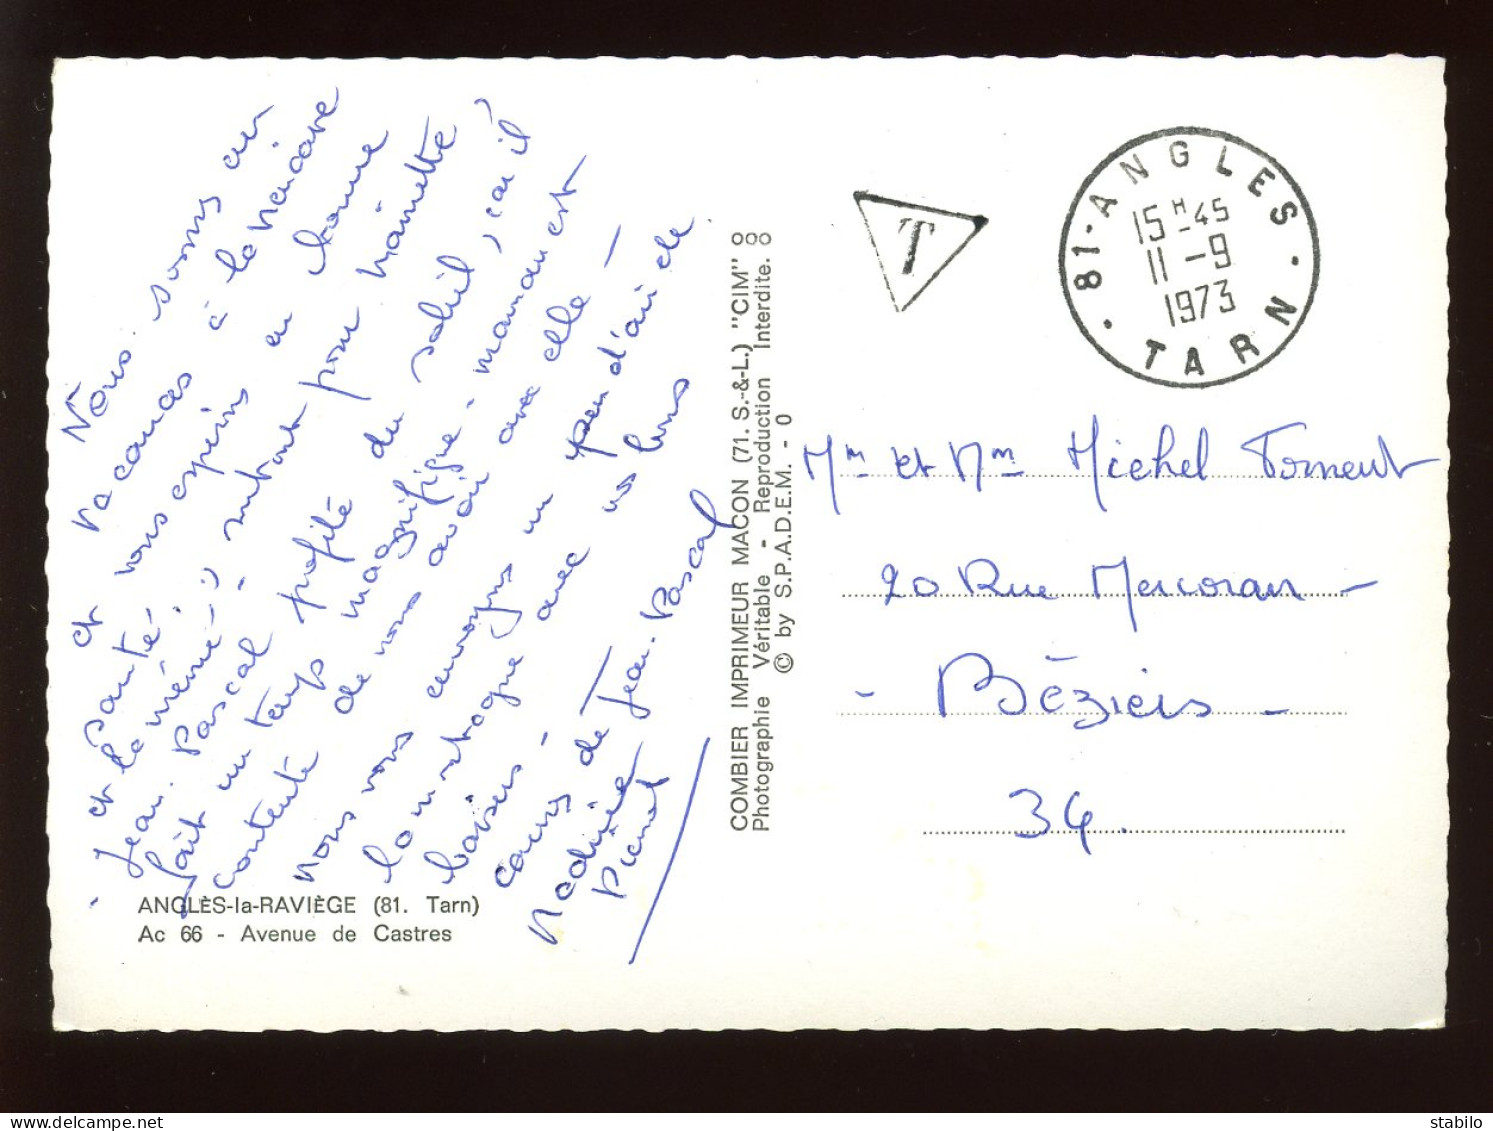 Nous sommes en
vacances à la
et vous espérons en bonne
santé, surtout pour Mainette
et la mémé.
Jean-Pascal profite du soleil, car il
fait un temps magnifique - maman est
contente de nous avoir avec elle -
nous vous envoyons un peu d'air de
la montagne avec nos bons
baisers -
de Jean-Pascal
Pierrot
ANGLÈS-la-RAVIÈGE (81. Tarn)
Ac 66 - Avenue de Castres
COMBIER IMPRIMEUR MACON (71. S.-&-L.) "CIM"
Photographie Véritable - Reproduction Interdite.
© by S.P.A.D.E.M. - 0
T
81 - ANGLES - TARN
15 H 45
11 - 9
1973
Mr et Mme Michel
20 Rue Mercoran -
- Béziers -
34.
stabilo
delcampe.net